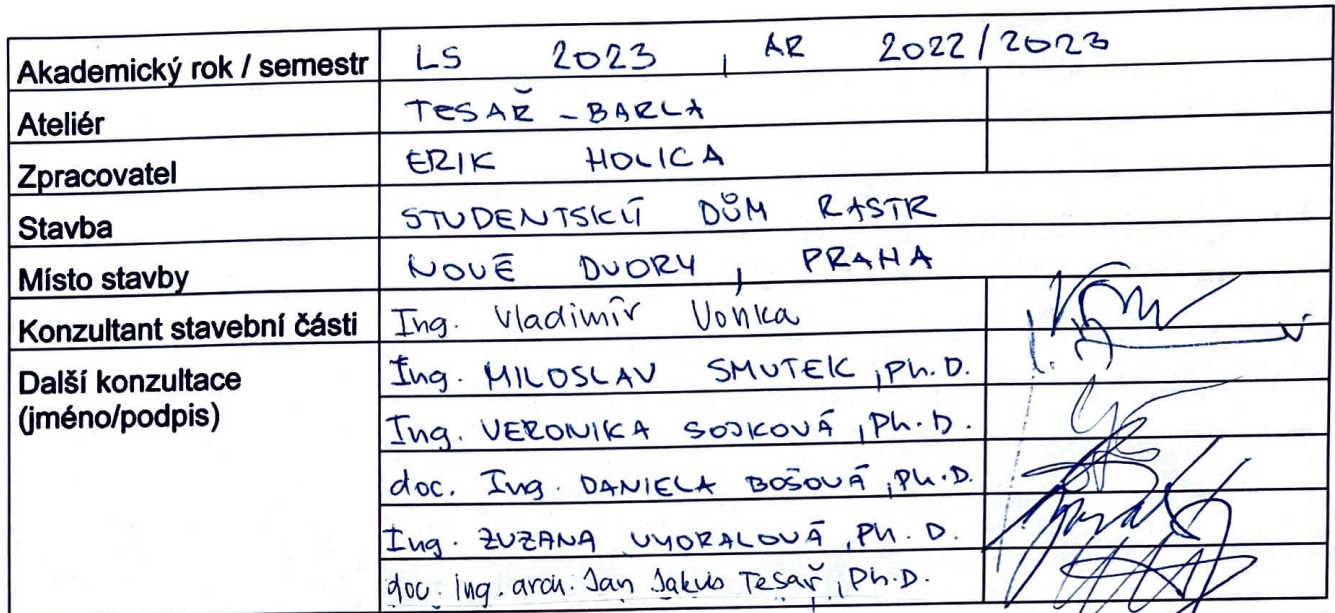 Akademický rok / semestr LS 2023 , AR 2022/2023
Ateliér TESAŘ - BARLA
Zpracovatel ERIK HOLICA
Stavba STUDENTSKÝ DŮM RASTR
Místo stavby NOVÉ DVORY, PRAHA
Konzultant stavební části Ing. Vladimír Vonka
Další konzultace Ing. MILOSLAV SMUTEK, Ph.D.
(jméno/podpis)
Ing. VERONIKA SOJKOVÁ, Ph.D.
doc. Ing. DANIELA BOŠOVÁ, Ph.D.
Ing. ZUZANA VYORALOVÁ, Ph.D.
doc. ing. arch. Jan Jakub Tesař, Ph.D.